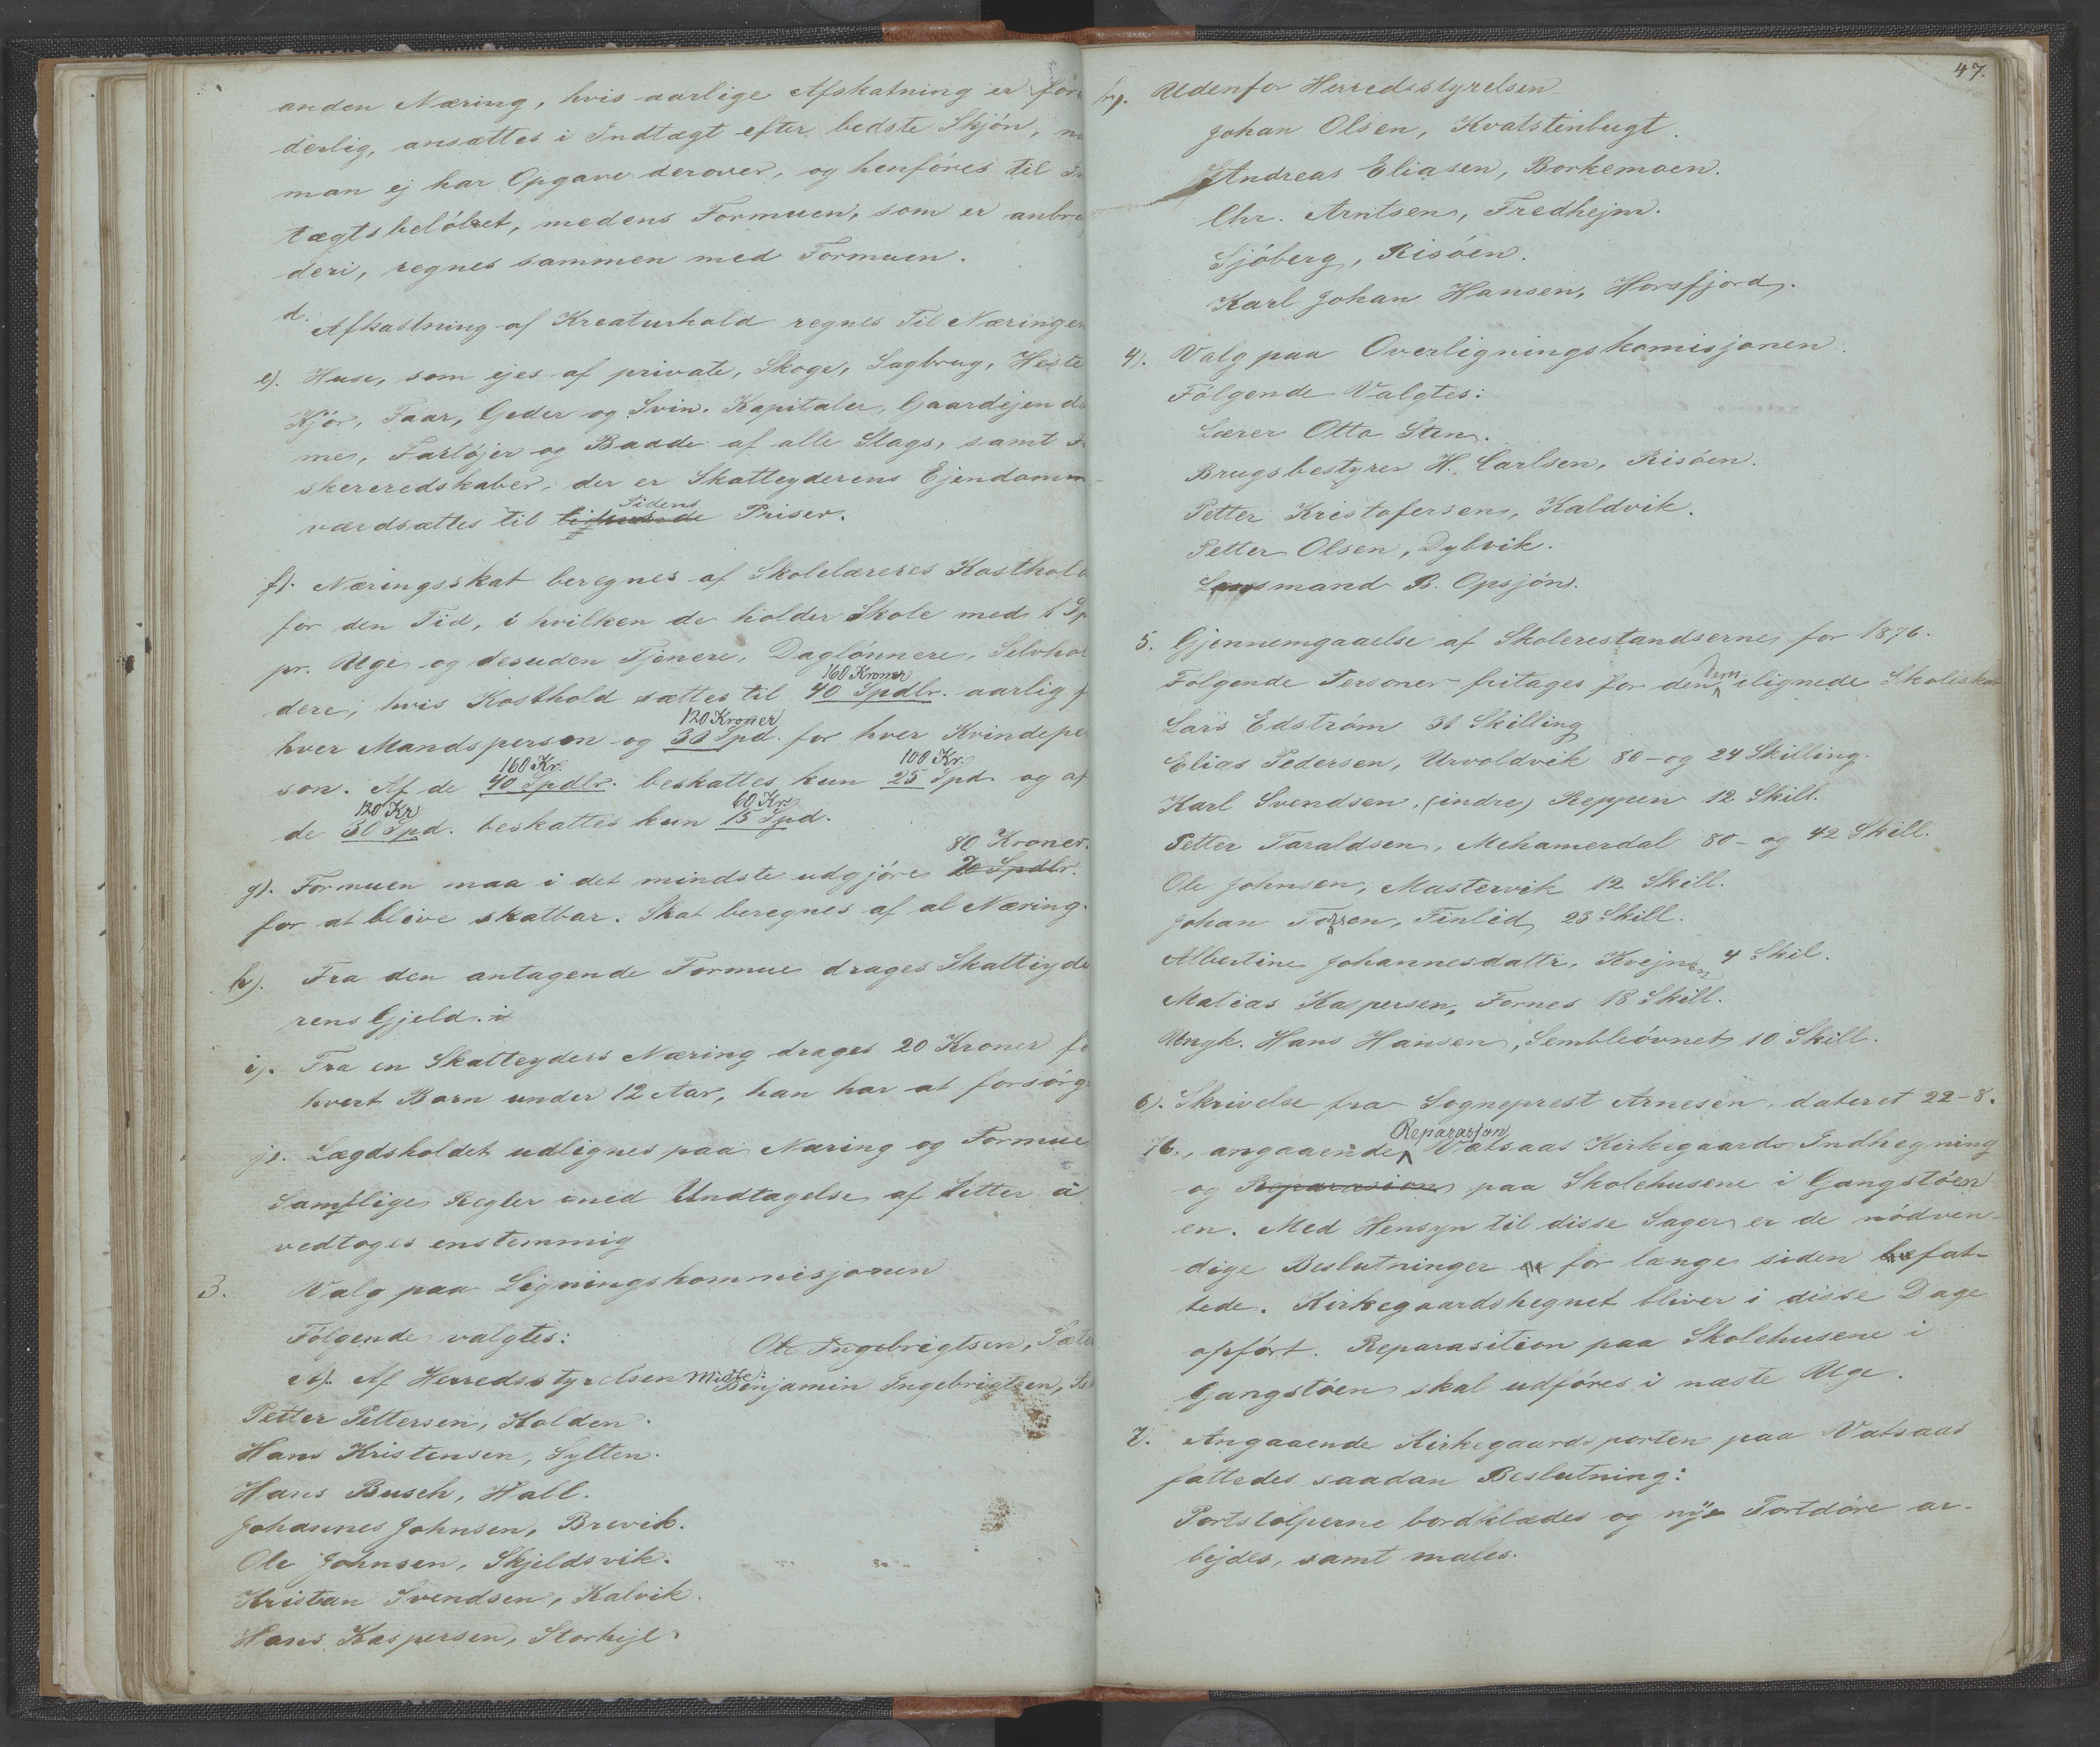 anden Næring, hvis aarlige Afskatning er for
derlig, ansættes i Indtægt efter bedste Skjön,
man ej har Opgave derover, og henföres til
tægtsbelöbet, medens Formuen, som er anbra
deri, regnes sammen med Formuen.
d. Afkastning af Kreaturhold regnes Til Næringen
e). Huse, som ejes af private, Skoge, Sagbrug, Heste
Kjör, Faar, Geder og Svin. Kapitaler, Gaardejendo
me, Fartöjer og Baade af alle Slags, samt
skeredskaber, der er Skatteyderens Ejendomm
Tidens
værdsættes til Priser.
f). Næringsskat beregnes af Skolelæreres Kosthold
for den Tid, i hvilken de holder Skole med 1 Sp
pr. Uge og desuden Tjenere, Daglönnere, Selvhol
160 Kroner
dere, hvis Kosthold sættes til 40 Spdlr. aarlig f
120 Kroner
hver Mandsperson og 30 Spd. for hver Kvindeper
160 Kr. 100 Kr.
son. Af de 40 Spdlr. beskattes kun 25 Spd og af
120 Kr 60 Kr.
de 30 Spd. beskattes kun 15 Spd.
80 Kroner.
g). Formuen maa i det mindste udgjöre 20 Spdlr.
for at blive skatbar. Skat beregnes af al Næring.
h). Fra den antagende Formue drages Skatteyde
rens Gjeld.
i). Fra en Skatteyders Næring drages 20 Kroner fo
hvert Barn under 12 Aar, han har at forsörge
j). Lægdsholdet udlignes paa Næring og Formue
Samtlige Regler med Undtagelse af Litter a
vedtoges enstemmig
3. Valg paa Ligningskommisjonen
Fölgende valgtes:
Ole Ingebrigtsen,
A). Af Herredsstyrelsen Midte: Benjamin Ingebrigtsen,
Petter Pettersen, Holden.
Hans Kristensen, Sylten.
Hans Busch, Hall.
Johannes Johnsen, Brevik.
Ole Johnsen, Skjeldsvik.
Kristian Svendsen, Kalvik.
Hans Kaspersen, Storhejl.
47.
Udenfor Herredsstyrelsen
Johan Olsen, Kvatstenbugt.
Andreas Eliasen, Borkemoen.
Chr. Arntsen, Fredhejm.
Sjöberg, Risöen.
Karl Johan Hansen, Horsfjord.
4). Valg paa Overligningskomisjonen.
Fölgende Valgtes:
Lærer Otto Sten.
Brugsbestyrer H. Carlsen, Risöen.
Petter Kristofersen, Kaldvik.
Petter Olsen, Dybvik.
Lensmand B. Opsjön.
5. Gjennemgaaelse af Skolerestandserne for 1876.
dem
Følgende Personer fritages for den ilignede Skoleskat
Lars Edström 31 Skilling
Elias Pedersen, Urvoldvik 80 - og 24 Skilling.
Karl Svendsen, (indre) Reppen 12 Skill.
Petter Taraldsen, Mehamerdal 80 - og 42 Skill.
Ole Johnsen, Mastervik 12 Skill.
Johan Torsen, Finlid, 23 Skill.
Albertine Johannesdattr, 4 Skil.
Matias Kaspersen, Fornes 18 Skill.
Ungk. Hans Hansen, Sembleövnet 10 Skill.
6). Skrivelse fra Sogneprest Arnesen, dateret 22-8.
Reparasjon
76., angaaende Vatsaas Kirkegaards Indhegning
og Reparasion paa Skolehusene i Gangstöen
en. Med Hensyn til disse Sager er de nödven-
dige Beslutninger for længe siden fat-
tede. Kirkegaardshegnet bliver i disse Dage
opfört. Reparasition paa Skolehusene i
Gangstöen skal udföres i næste Uge.
7. Angaaende Kirkegaardsporten paa Vatsaas
fattedes saadan Beslutning:
Portstolperne bordklædes og nye Portdöre ar-
bejdes, samt males.